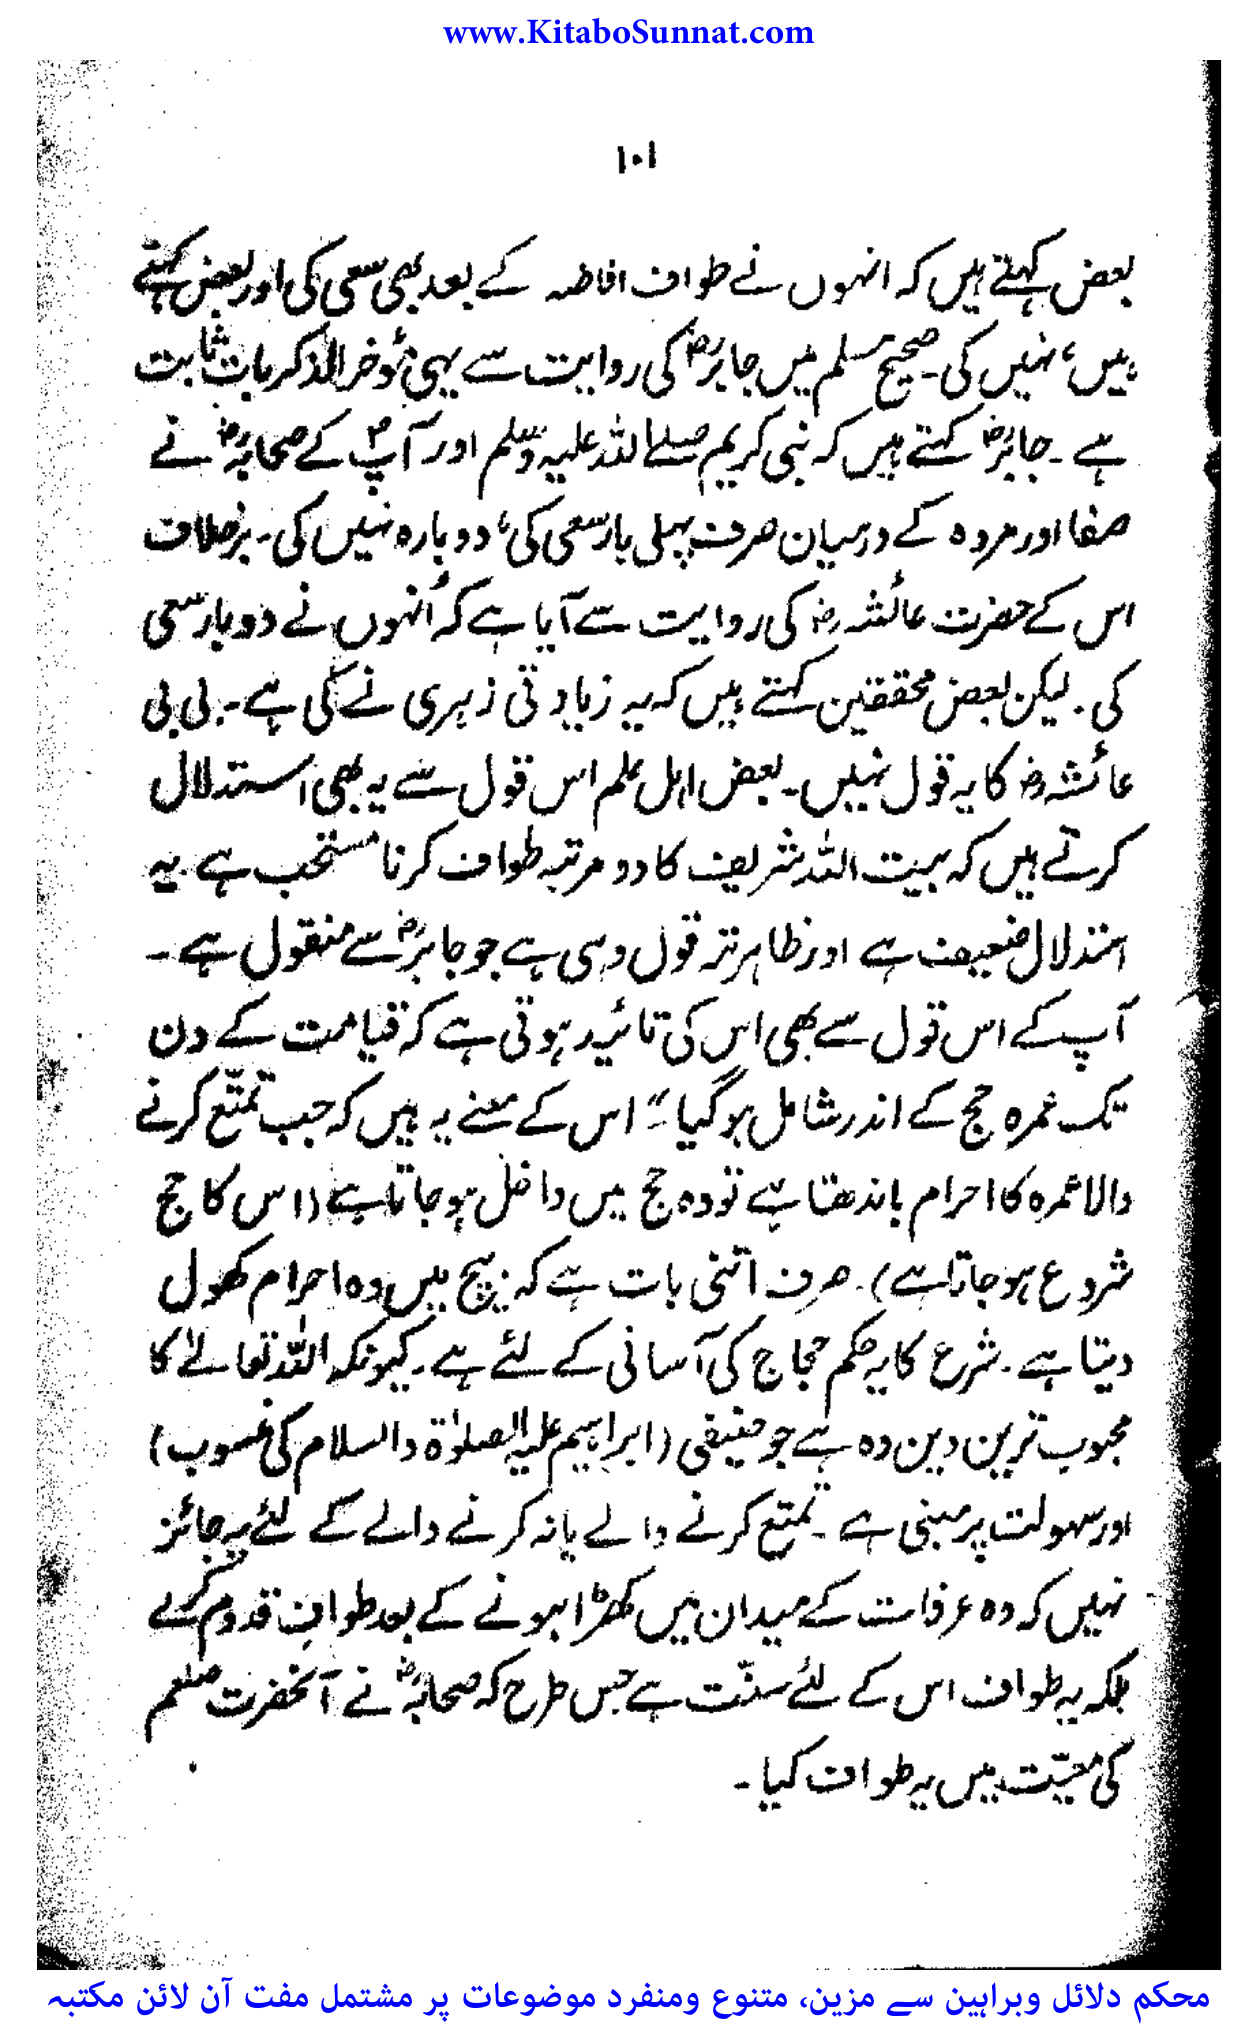 www.KitaboSunnat.com
۱۰۱
بعض کہتے ہیں کہ انہوں نے طواف افاضہ کے بعد بھی سعی کی اور بعض کہتے
ہیں، نہیں کی۔ صحیح مسلم میں جابرؓ کی روایت سے یہی مؤخر الذکر بات ثابت
ہے۔ جابرؓ کہتے ہیں کہ نبی کریم صلے اللہ علیہ وسلم اور آپؐ کے صحابہؓ نے
صفا اور مروہ کے درمیان صرف پہلی بار سعی کی، دوبارہ نہیں کی۔ برخلاف
اس کے حضرت عائشہؓ کی روایت سے آیا ہے کہ اُنہوں نے دو بار سعی
کی۔ لیکن بعض محققین کہتے ہیں کہ یہ زیادتی زہری نے کی ہے۔ بی بی
عائشہؓ کا یہ قول نہیں۔ بعض اہل علم اس قول سے یہ بھی استدلال
کرتے ہیں کہ بیت اللہ شریف کا دو مرتبہ طواف کرنا مستحب ہے۔ یہ
استدلال ضعیف ہے اور ظاہر تر قول وہی ہے جو جابرؓ سے منقول ہے۔
آپ کے اس قول سے بھی اس کی تائید ہوتی ہے کہ قیامت کے دن
تک عمرہ حج کے اندر شامل ہو گیا"۔ اس کے معنے یہ ہیں کہ جب تمتّع کرنے
والا عمرہ کا احرام باندھتا ہے تو وہ حج میں داخل ہو جاتا ہے (اس کا حج
شروع ہو جاتا ہے)۔ صرف اتنی بات ہے کہ بیچ میں وہ احرام کھول
دیتا ہے۔ شرع کا یہ حکم حجاج کی آسانی کے لئے ہے۔ کیونکہ اللہ تعالےٰ کا
محبوب ترین دین وہ ہے جو حنیفی (ابراہیم علیہ الصلوٰۃ والسلام کی منسوب)
اور سہولت پر مبنی ہے۔ تمتع کرنے والے یا نہ کرنے والے کے لئے یہ جائز
نہیں کہ وہ عرفات کے میدان میں کھڑا ہونے کے بعد طوافِ قدوم کرے
بلکہ یہ طواف اس کے لئے سنّت ہے جس طرح کہ صحابہؓ نے آنحضرت صلعم
کی معیّت میں یہ طواف کیا۔
محکم دلائل وبراہین سے مزین، متنوع ومنفرد موضوعات پر مشتمل مفت آن لائن مکتبہ